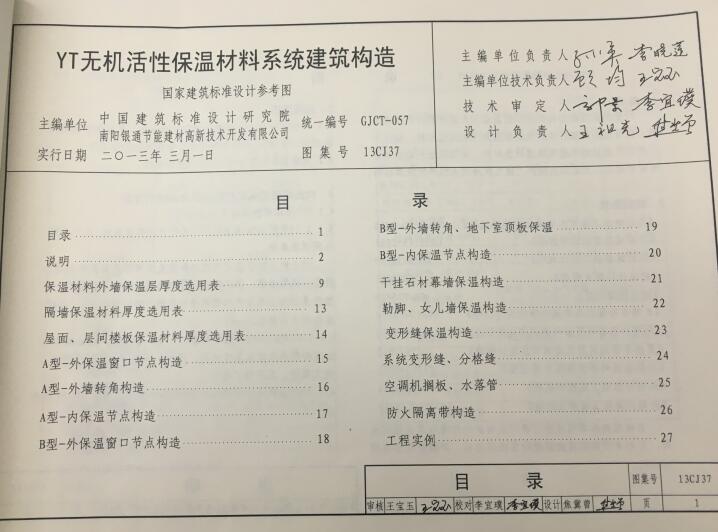 YT无机活性保温材料系统建筑构造
国家建筑标准设计参考图
主编单位 中国建筑标准设计研究院
南阳银通节能建材高新技术开发有限公司
统一编号 GJCT-057
实行日期 二〇一三年三月一日
图集号 13CJ37
主编单位负责人 李晓莲
主编单位技术负责人 顾均 王宝玉
技术审定人 李宜璞
设计负责人 王祖光 焦冀曾
目 录
目录 1
说明 2
保温材料外墙保温层厚度选用表 9
隔墙保温材料厚度选用表 13
屋面、层间楼板保温材料厚度选用表 14
A型-外保温窗口节点构造 15
A型-外墙转角构造 16
A型-内保温节点构造 17
B型-外保温窗口节点构造 18
B型-外墙转角、地下室顶板保温 19
B型-内保温节点构造 20
干挂石材幕墙保温构造 21
勒脚、女儿墙保温构造 22
变形缝保温构造 23
系统变形缝、分格缝 24
空调机搁板、水落管 25
防火隔离带构造 26
工程实例 27
目 录 图集号 13CJ37
审核 王宝玉 王宝玉 校对 李宜璞 李宜璞 设计 焦冀曾 焦冀曾 页 1